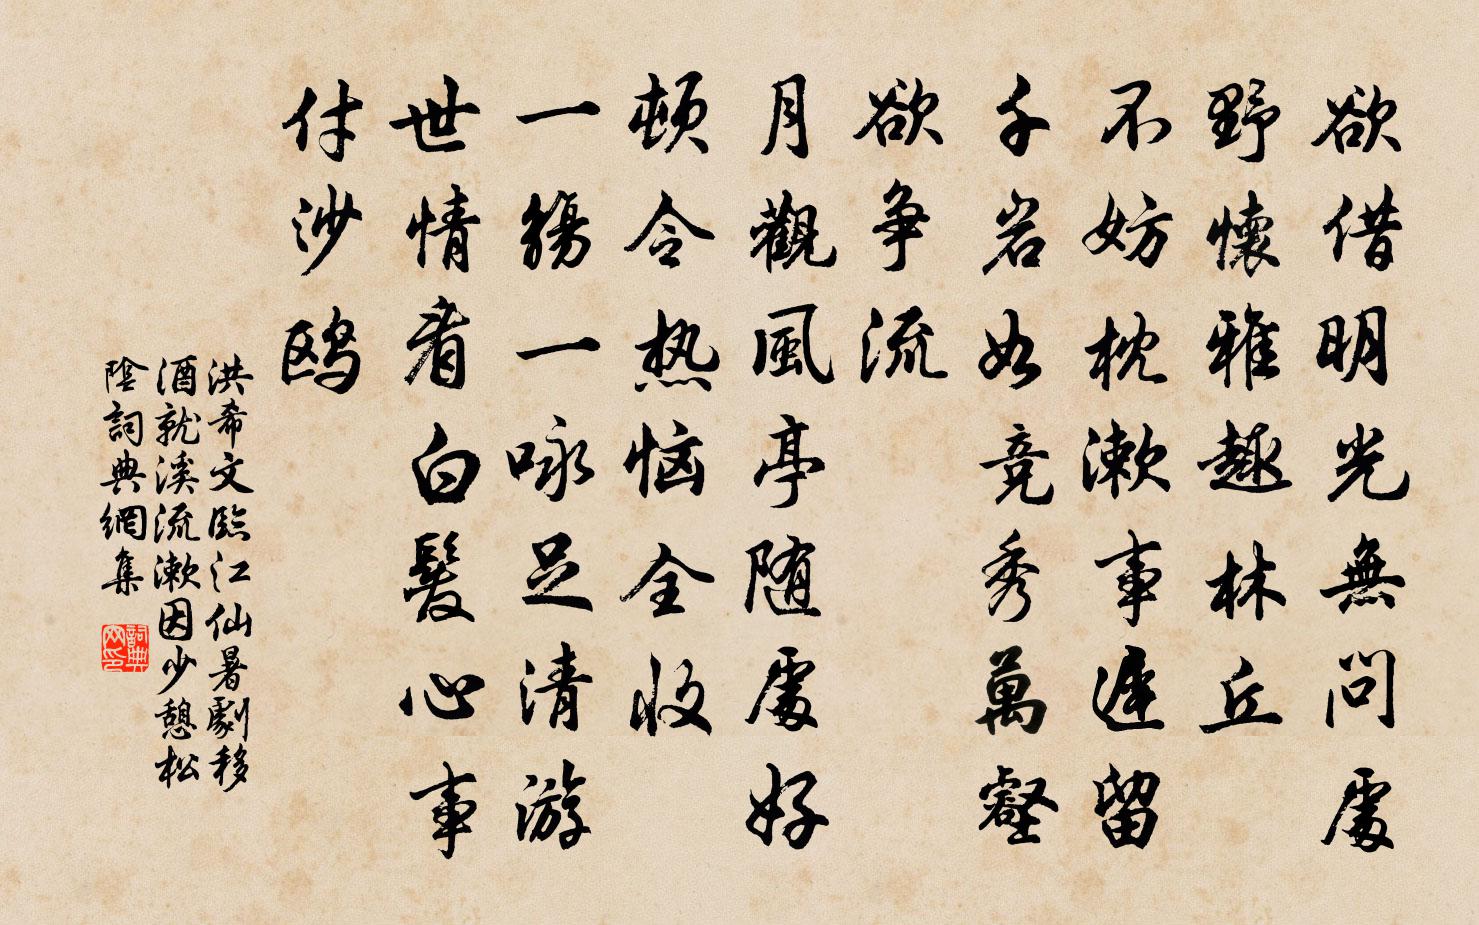 欲借明光無問處
野懷雅趣林丘
不妨枕漱事遲留
千岩如竞秀萬壑
欲争流
月觀風亭随處好
頓令热恼全收
一觴一咏足清游
世情看白髮心事
付沙鸥
洪希文臨江仙暑劇移
酒就溪流漱因少憩松
陰詞典網集
詞典網印